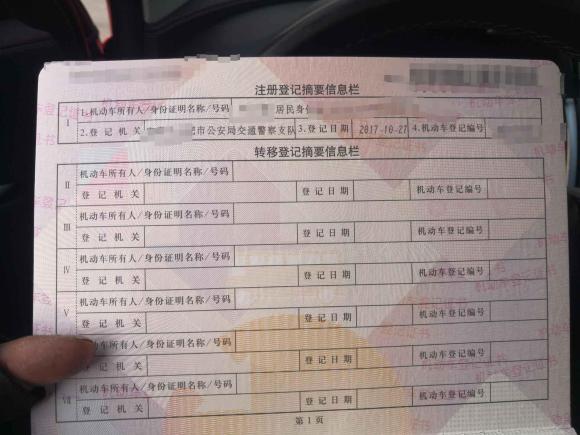 注册登记摘要信息栏
I 1.机动车所有人/身份证明名称/号码 居民身份
2.登记机关 市公安局交通警察支队 3.登记日期 2017-10-27 4.机动车登记编号
转移登记摘要信息栏
II 机动车所有人/身份证明名称/号码
登记机关 登记日期 机动车登记编号
III 机动车所有人/身份证明名称/号码
登记机关 登记日期 机动车登记编号
IV 机动车所有人/身份证明名称/号码
登记机关 登记日期 机动车登记编号
V 机动车所有人/身份证明名称/号码
登记机关 登记日期 机动车登记编号
机动车所有人/身份证明名称/号码
登记机关 登记日期 机动车登记编号
VII 机动车所有人/身份证明名称/号码
登记机关 登记日期 机动车登记编号
第1页